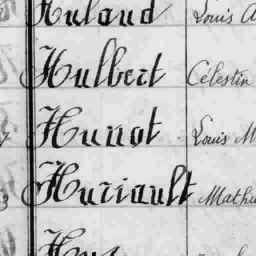 Huland Louis A
Hulbert Célestin
Hunot Louis M
Huriault Mathu